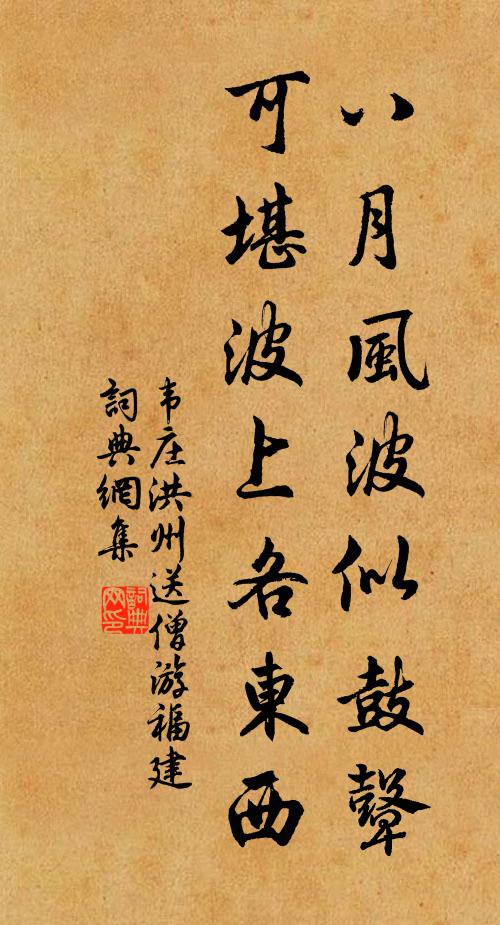 八月風波似鼓鼙
可堪波上各東西
韦庄洪州送僧游福建
詞典網集
詞典网印